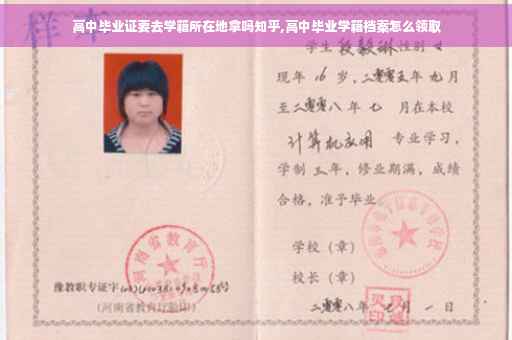 高中毕业证要去学籍所在地拿吗知乎,高中毕业学籍档案怎么领取
样本
学生 段毅琳 性别 女
现年 16 岁，二零零五年 九月
至二零零八年 七 月在本校
计算机应用 专业学习，
学制 三年，修业期满，成绩
合格，准予毕业。
学校（章）
校长（章）
河南省教育厅
豫教职专证字
(河南省教育厅验印)
二零零八年 七月 一 日